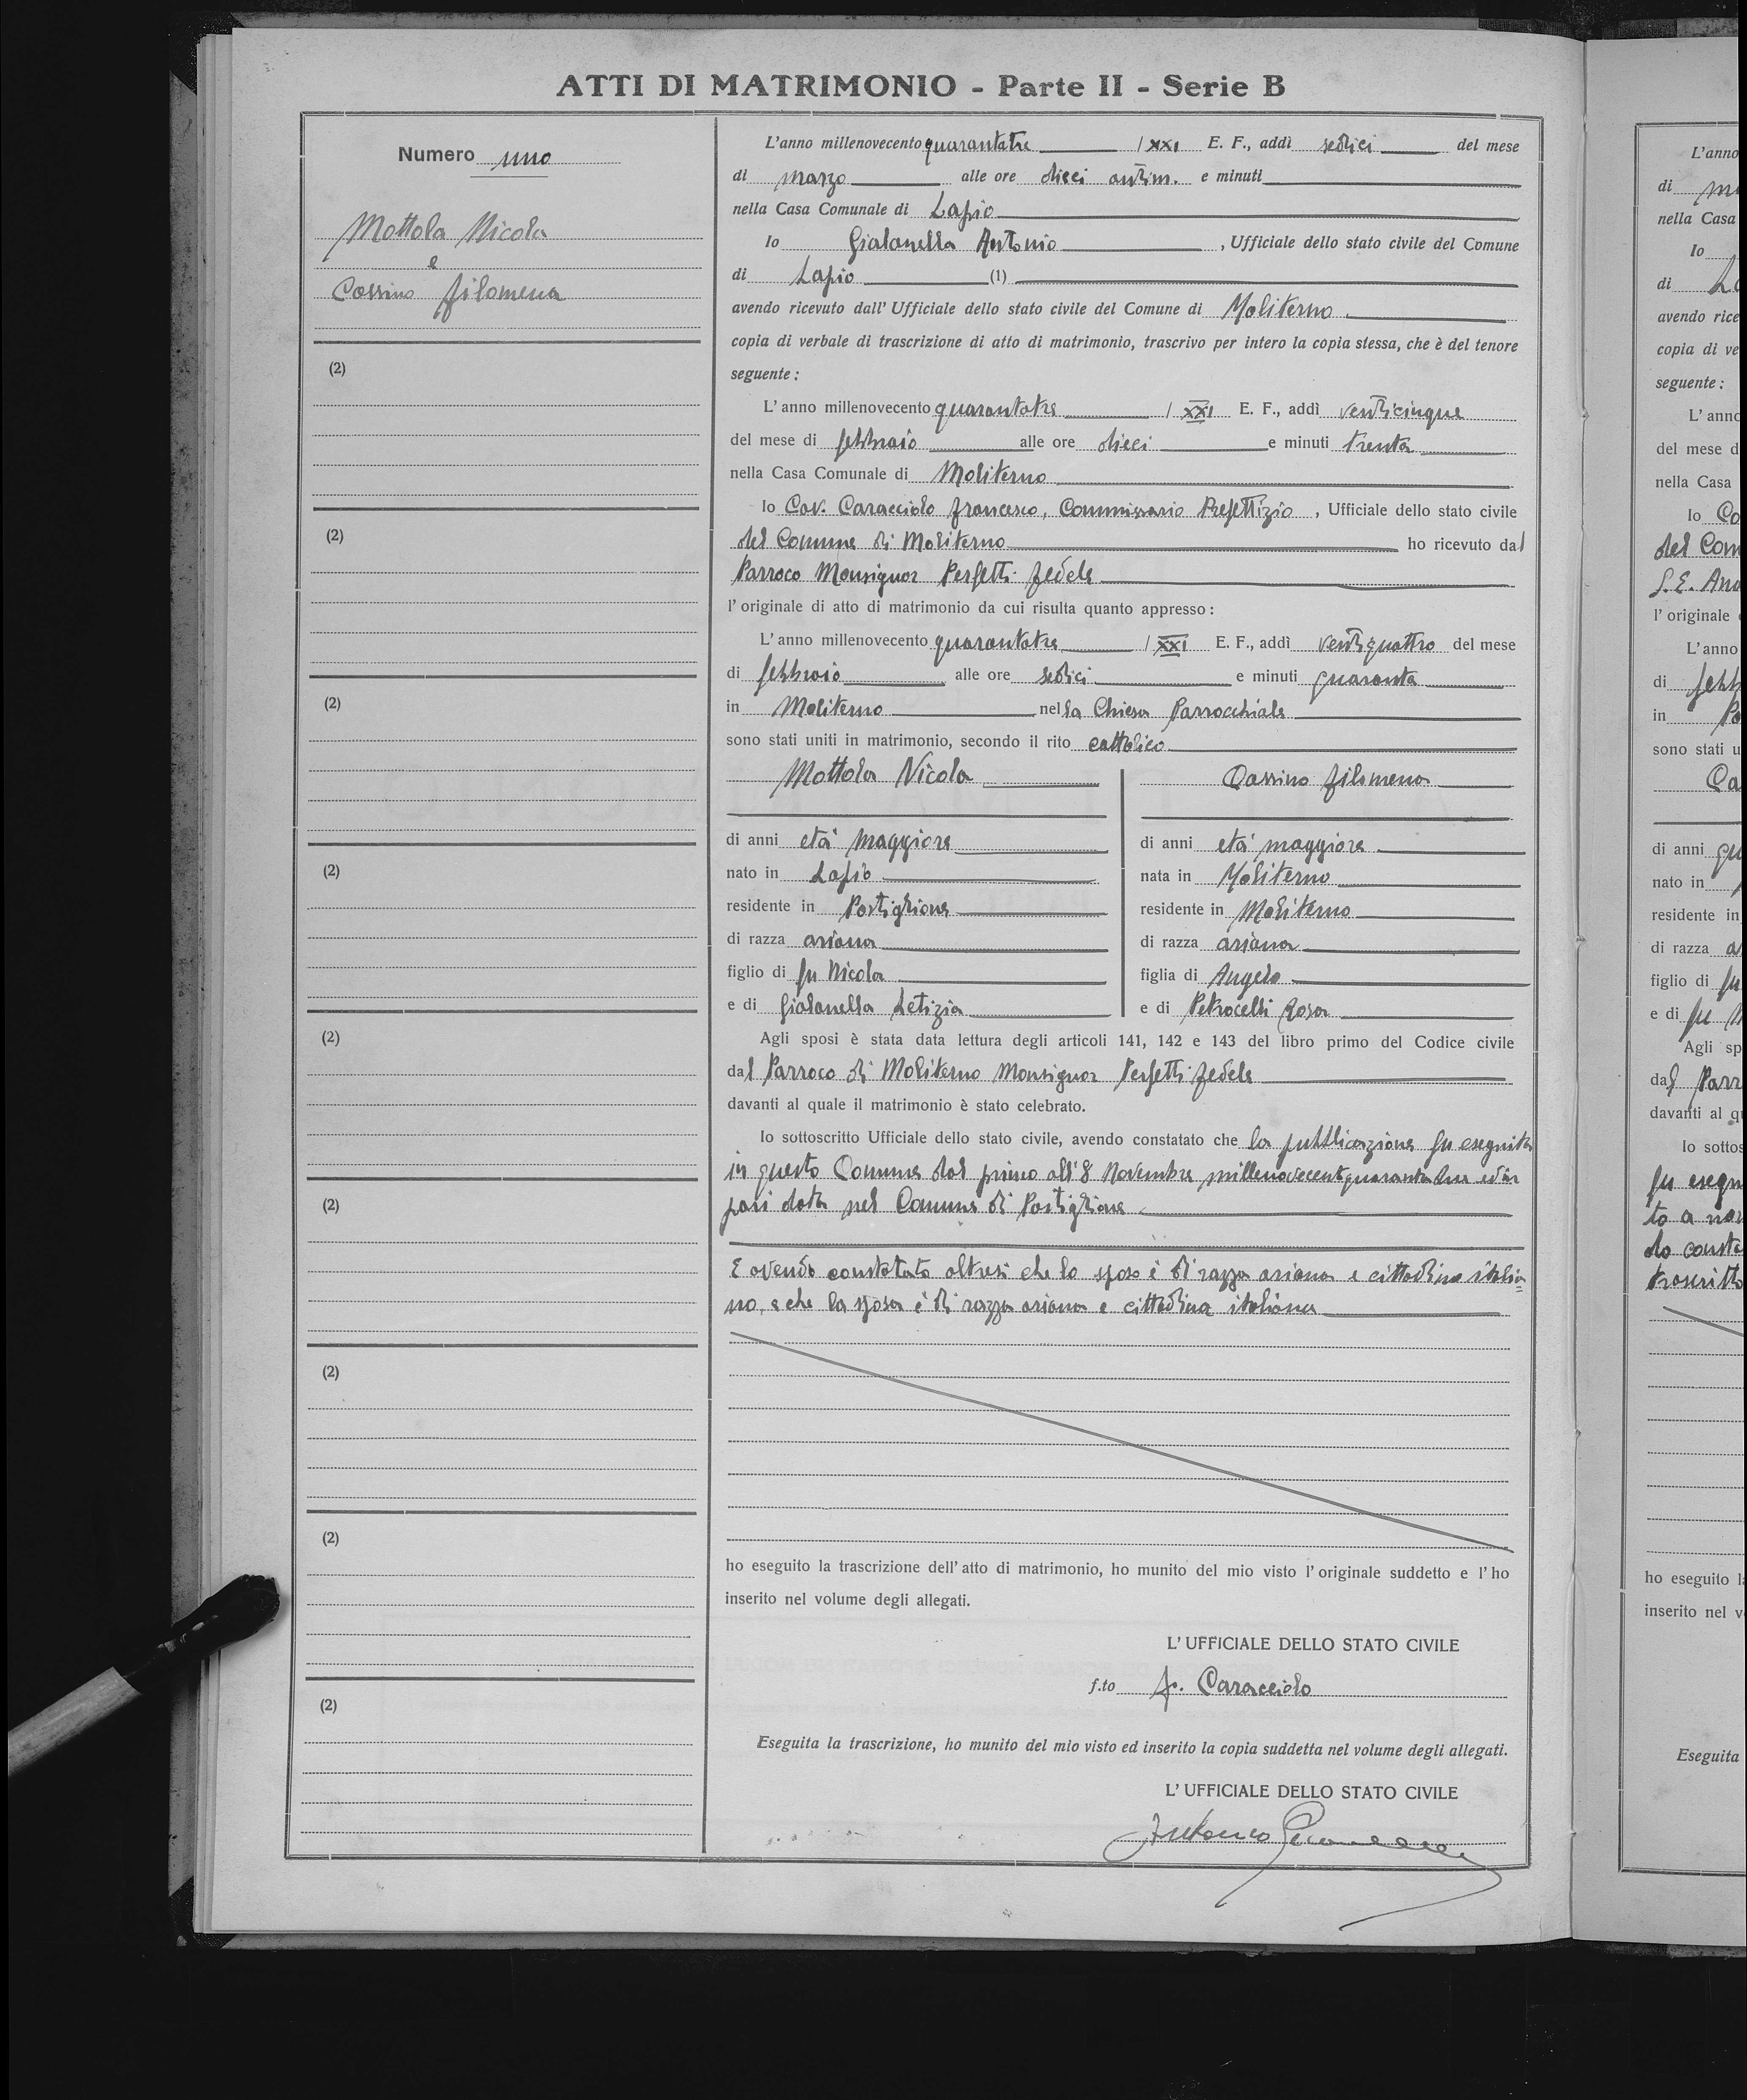 ATTI DI MATRIMONIO - Parte II - Serie B
Numero uno
Mottola Nicola
e
Cassino Filomena
(2)
(2)
(2)
(2)
(2)
(2)
(2)
(2)
(2)
L'anno millenovecento quarantatre / XXI E. F., addì sedici del mese
di marzo alle ore dieci antim. e minuti
nella Casa Comunale di Lapio
Io Gialanella Antonio, Ufficiale dello stato civile del Comune
di Lapio (1)
avendo ricevuto dall' Ufficiale dello stato civile del Comune di Moliterno
copia di verbale di trascrizione di atto di matrimonio, trascrivo per intero la copia stessa, che è del tenore
seguente:
L' anno millenovecento quarantatre / XXI E. F., addì venticinque
del mese di febbraio alle ore dieci e minuti trenta
nella Casa Comunale di Moliterno
Io Cav. Caracciolo Francesco, Commissario Prefettizio, Ufficiale dello stato civile
del Comune di Moliterno ho ricevuto dal
Parroco Monsignor Perfetti Fedele
l' originale di atto di matrimonio da cui risulta quanto appresso:
L' anno millenovecento quarantatre / XXI E. F., addì ventiquattro del mese
di febbraio alle ore sedici e minuti quaranta
in Moliterno nella Chiesa Parrocchiale
sono stati uniti in matrimonio, secondo il rito cattolico
Mottola Nicola
di anni età maggiore
nato in Lapio
residente in Postiglione
di razza ariana
figlio di fu Nicola
e di Gialanella Letizia
Cassino Filomena
di anni età maggiore
nata in Moliterno
residente in Moliterno
di razza ariana
figlia di Angelo
e di Petrocelli Rosa
Agli sposi è stata data lettura degli articoli 141, 142 e 143 del libro primo del Codice civile
dal Parroco di Moliterno Monsignor Perfetti Fedele
davanti al quale il matrimonio è stato celebrato.
Io sottoscritto Ufficiale dello stato civile, avendo constatato che la pubblicazione fu eseguita
in questo Comune dal primo all'8 Novembre millenovecentoquarantadue ed in
pari data nel Comune di Postiglione
E avendo constatato altresì che lo sposo è di razza ariana e cittadino italia=
no, e che la sposa è di razza ariana e cittadina italiana
ho eseguito la trascrizione dell' atto di matrimonio, ho munito del mio visto l' originale suddetto e l' ho
inserito nel volume degli allegati.
L' UFFICIALE DELLO STATO CIVILE
f.to F. Caracciolo
Eseguita la trascrizione, ho munito del mio visto ed inserito la copia suddetta nel volume degli allegati.
L' UFFICIALE DELLO STATO CIVILE
Antonio Gialanella
L'anno
di
nella Casa
Io
di
avendo rice
copia di ve
seguente:
L' anno
del mese d
nella Casa
Io
del Com
l' originale
L'anno
di febb
in
sono stati u
di anni
nato in
residente in
di razza
figlio di fu
e di fu
Agli sp
dal Parr
davanti al q
Io sottos
fu esegu
ho eseguito l
inserito nel v
Eseguita